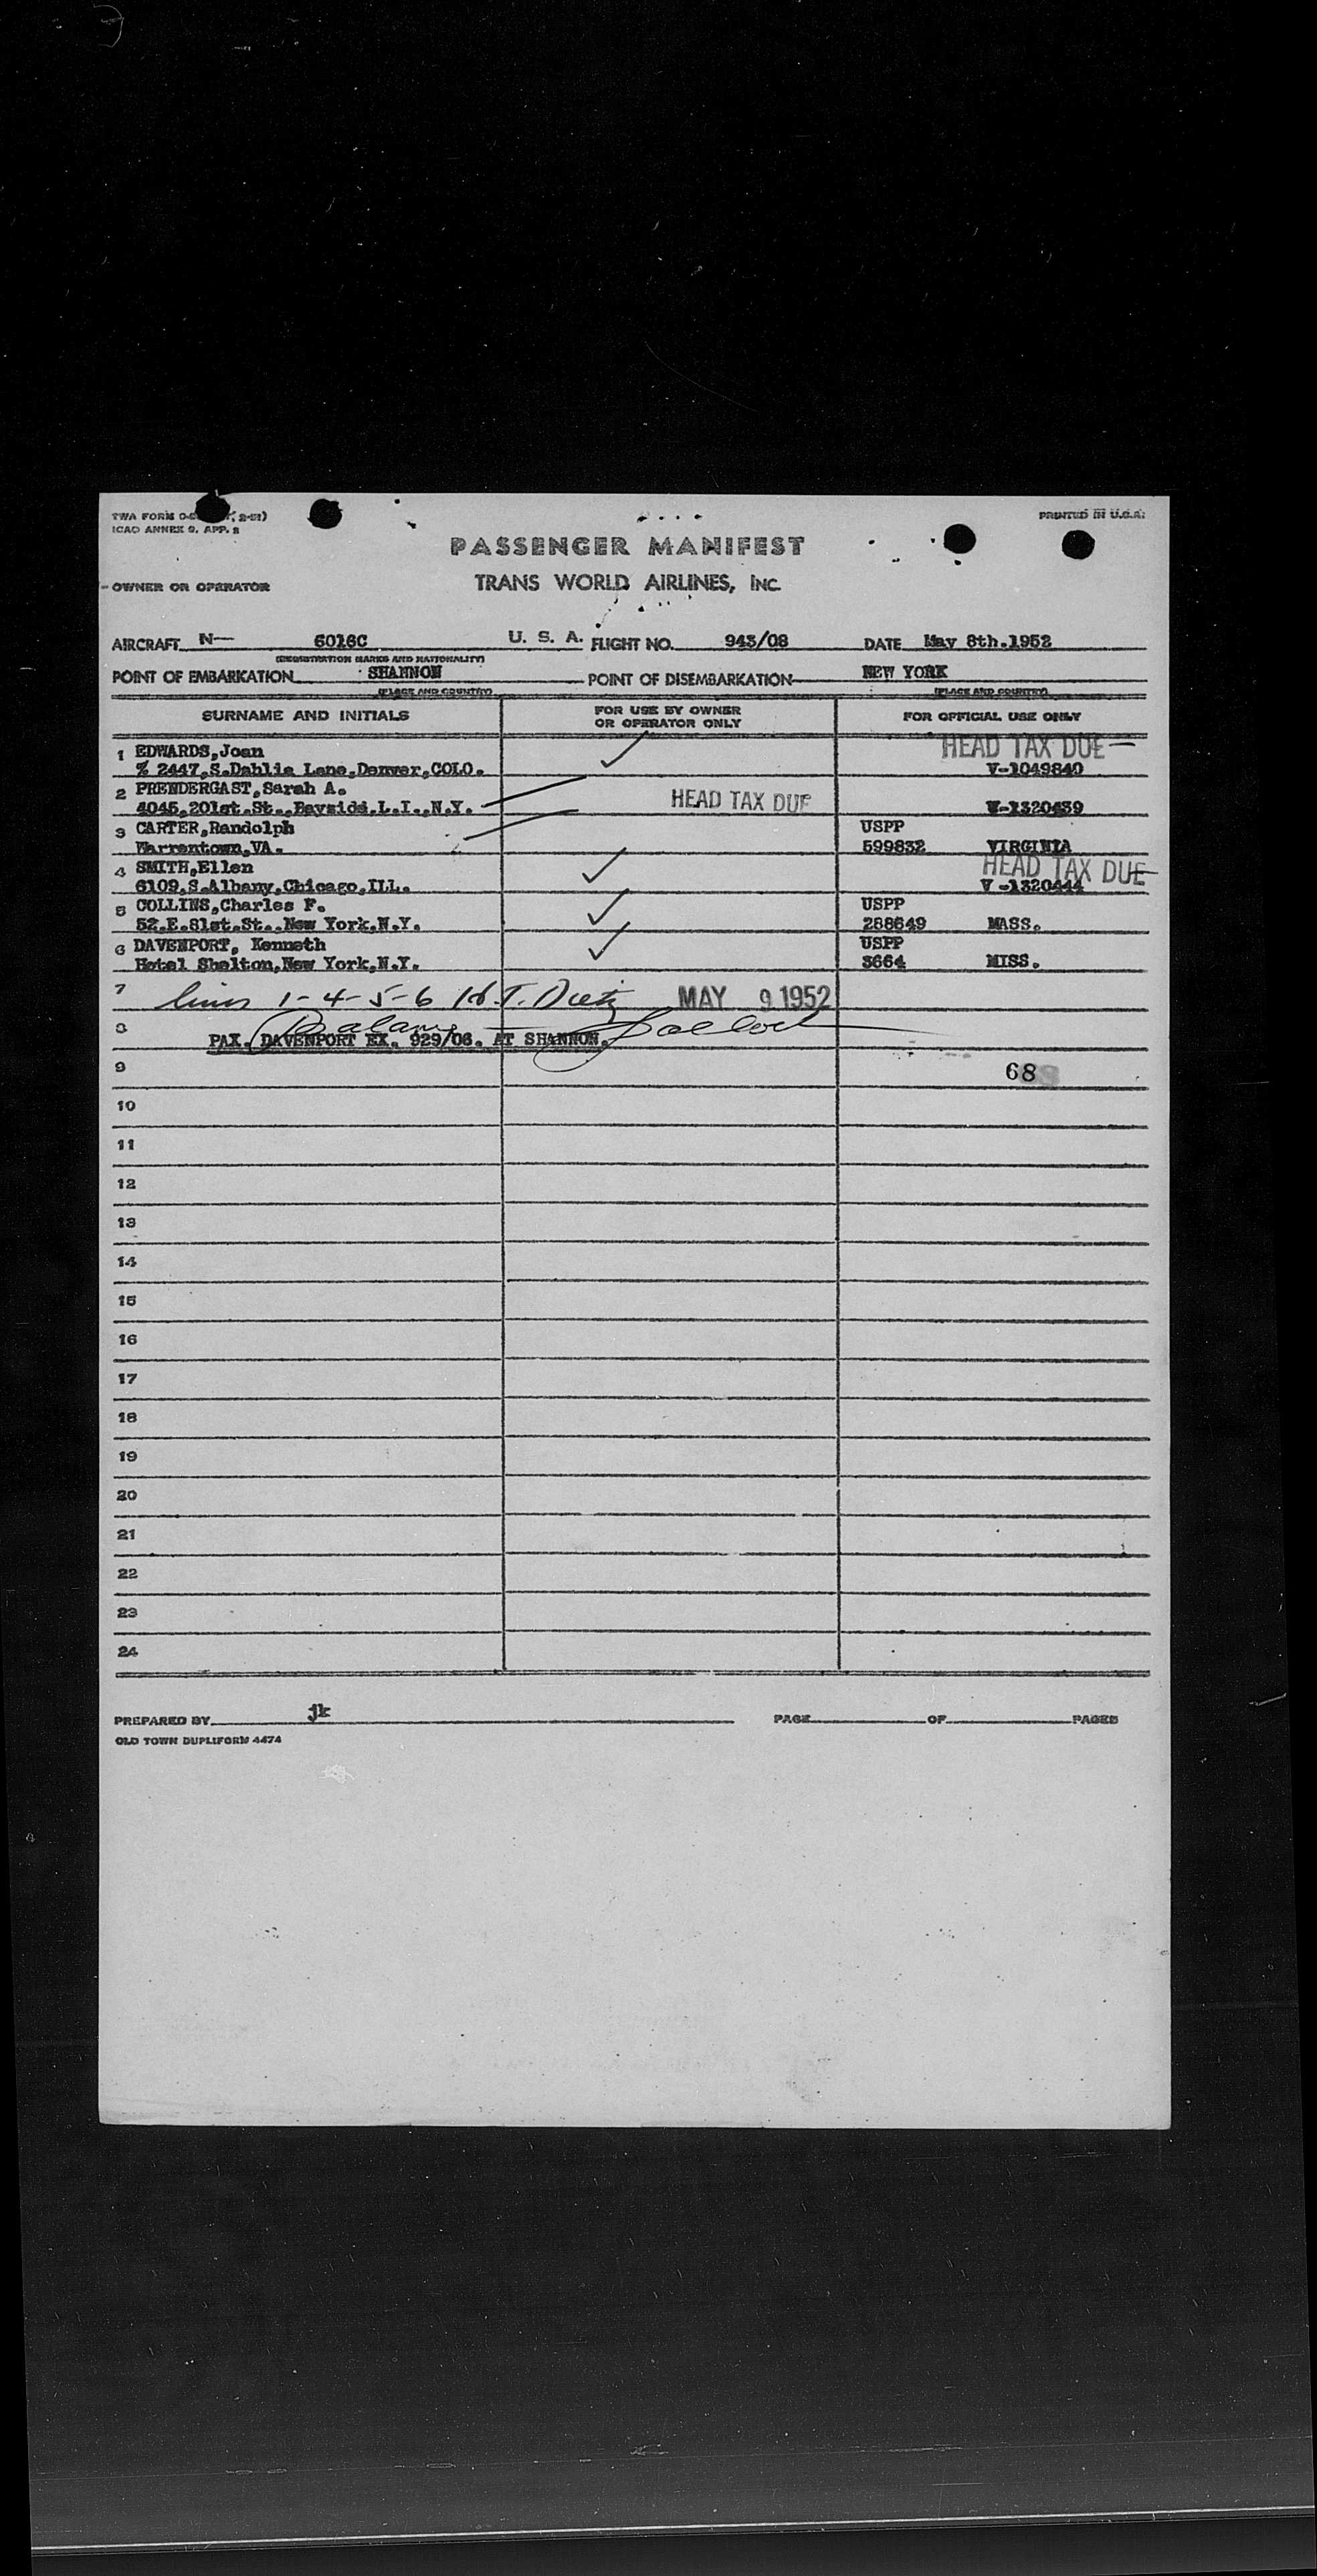 ICAO ANNEX 9, APP. 2
PRINTED IN U.S.A.
PASSENGER MANIFEST
OWNER OR OPERATOR
TRANS WORLD AIRLINES, INC.
AIRCRAFT N— 6016C U. S. A. FLIGHT NO. 943/08 DATE May 8th.1952
(REGISTRATION MARKS AND NATIONALITY)
POINT OF EMBARKATION SHANNON POINT OF DISEMBARKATION NEW YORK
(PLACE AND COUNTRY) (PLACE AND COUNTRY)
SURNAME AND INITIALS FOR USE BY OWNER OR OPERATOR ONLY FOR OFFICIAL USE ONLY
1 EDWARDS,Joan HEAD TAX DUE
% 2447,S.Dahlia Lane,Denver,COLO. V-1049840
2 PRENDERGAST,Sarah A.
4045,201st.St.,Bayside,L.I.,N.Y. HEAD TAX DUE V-1320439
3 CARTER,Randolph USPP
Warrentown,VA. 599832 VIRGINIA
4 SMITH,Ellen HEAD TAX DUE
6109,S.Albany,Chicago,ILL. V-1320444
5 COLLINS,Charles F. USPP
52.E.81st.St.,New York.N.Y. 288649 MASS.
6 DAVENPORT, Kenneth USPP
Hotel Shelton,New York,N.Y. 3664 MISS.
7 1-4-5-6 MAY 9 1952
8 PAX. DAVENPORT EX. 929/06. AT SHANNON.
9 68
10
11
12
13
14
15
16
17
18
19
20
21
22
23
24
PREPARED BY jk PAGE OF PAGES
OLD TOWN DUPLIFORM 4474